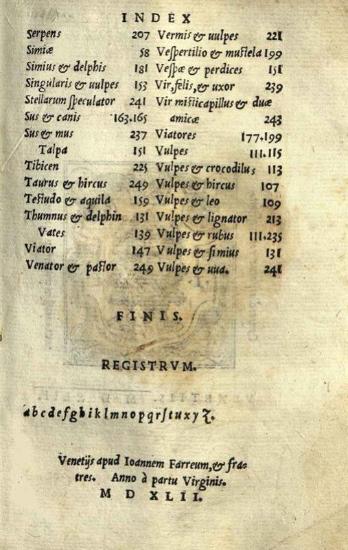 INDEX
Serpens 207
Simiæ 58
Simius & delphis 181
Singularis & uulpes 153
Stellarum speculator 241
Sus & canis 163.165
Sus & mus 237
Talpa 151
Tibicen 225
Taurus & hircus 249
Testudo & aquila 159
Thumnus & delphin 131
Vates 139
Viator 147
Venator & pastor 249
Vermis & uulpes 221
Vespertilio & mustela 199
Vespæ & perdices 151
Vir, felis, & uxor 239
Vir misticapillus & duæ
amicæ 243
Viatores 177.199
Vulpes 111.115
Vulpes & crocodilus 113
Vulpes & hircus 107
Vulpes & leo 109
Vulpes & lignator 213
Vulpes & rubus 111.235
Vulpes & simius 131
Vulpes & uua. 241
FINIS.
REGISTRVM.
abcdefghiklmnopqrſtuxyz.
Venetijs apud Ioannem Farreum, & fra=
tres. Anno à partu Virginis.
M D XLII.